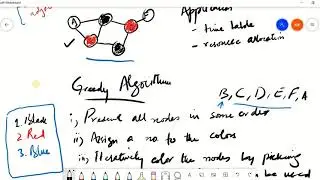 Application
- time table
- resource allocation
A
Greedy Algorithm
B, C, D, E, F, A
i) Present all nodes in some order
ii) Assign a no. to the colors
iii) Iteratively color the nodes by picking
be used
1. Black
2. Red
3. Blue